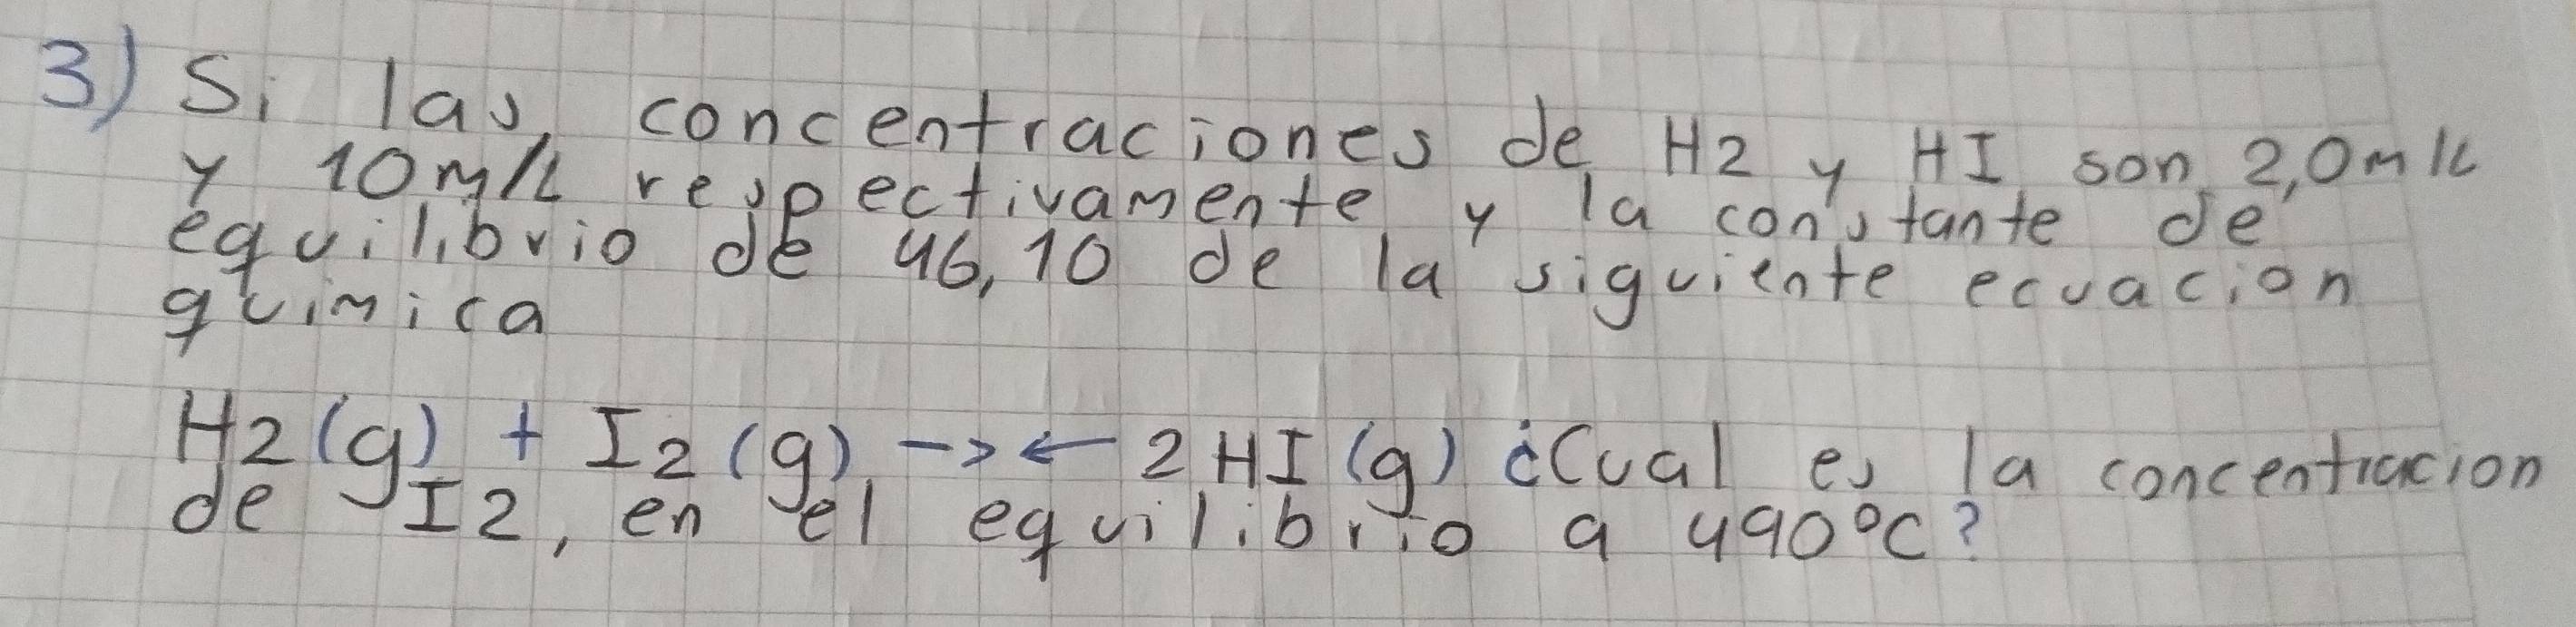 3) Si las concentraciones de H2 y HI son 2,0m/L
y 10m/L respectivamente y la constante de
equilibrio de 46,10 de la siguiente ecuacion
quimica
H2(g) + I2(g) -> <- 2HI(g) ¿Cual es la concentracion
de I2, en el equilibrio a 490°C?